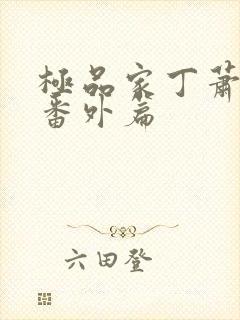 極品家丁蕭
番外扁
六田登